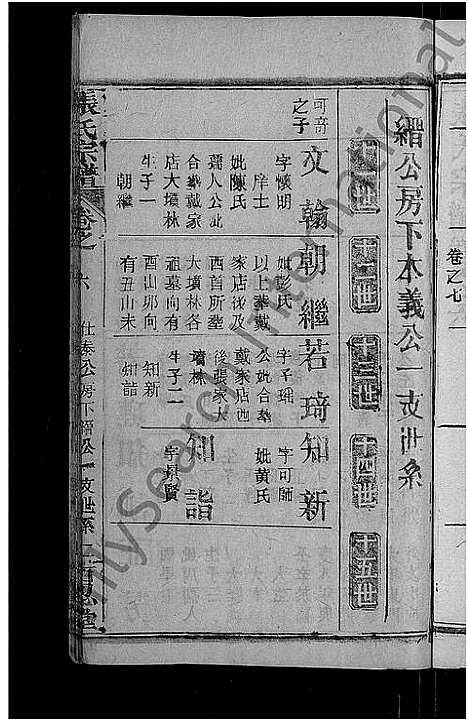 卷之七
緡公房下本義公一支世系
十一世
十二世
十三世
十四世
十五世
可奇
之子
文翰
字懷明
庠士
妣陳氏
孺人公妣
合塟戴家
店大墳林
生子一
朝繼
朝繼
妣彭氏
以上塟戴
家店後及
西首所塟
大墳林各
祖墓向有
酉山卯向
有丑山未
若琦
字子瑶
公妣合塟
戴家店也
後張家大
墳林
生子二
知新
知詣
知新
字可師
妣黄氏
知詣
字邦賢
張氏宗譜
卷之
六
仕泰公房下緡公一支世系
百忍堂
MySearch International